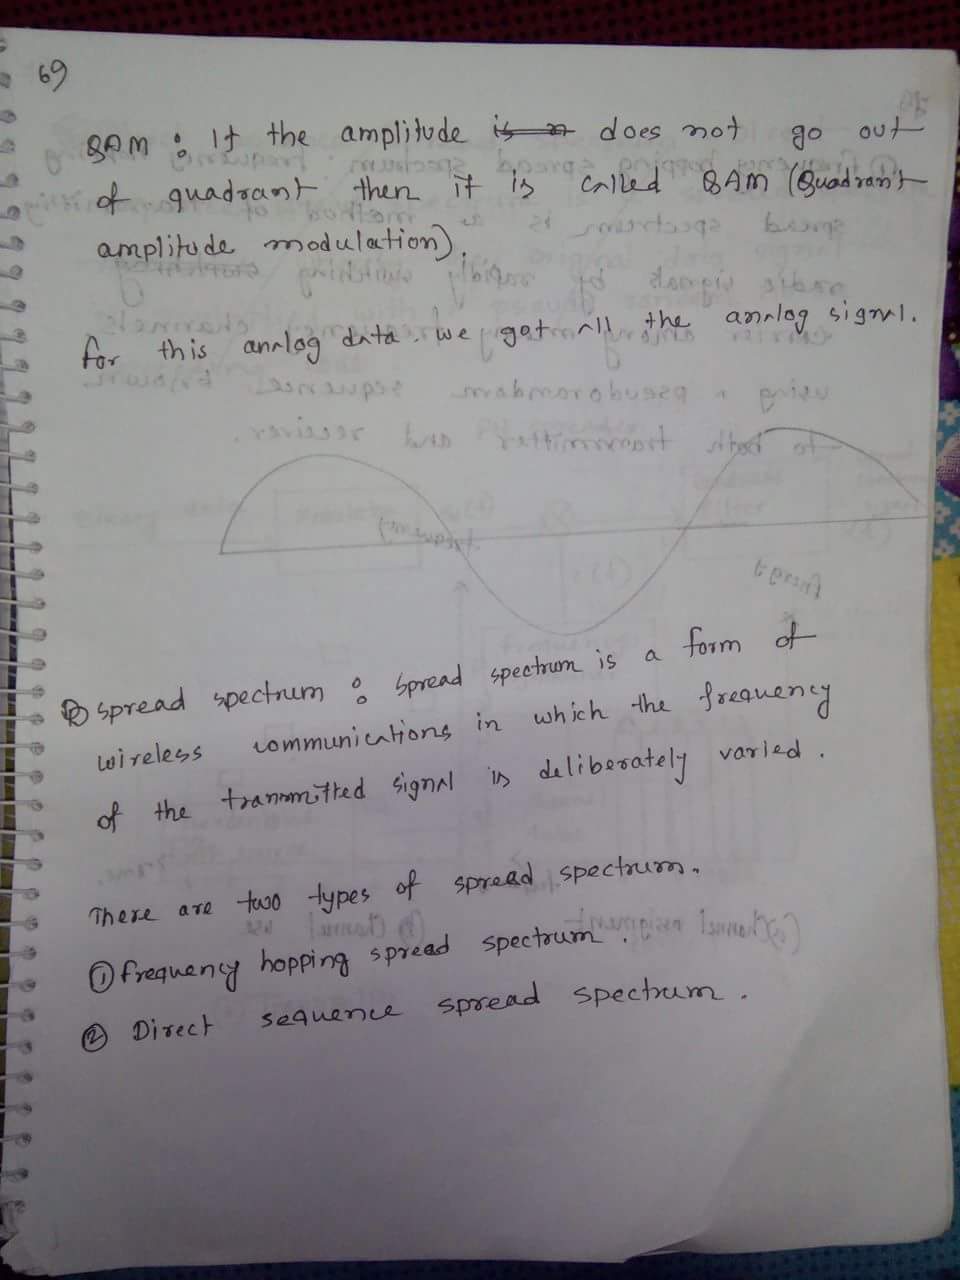 69
QAM : If the amplitude does not go out
of quadrant then it is called QAM (Quadrant
amplitude modulation).
for this analog data. we got all the analog signal.
Spread spectrum : Spread spectrum is a form of
wireless communications in which the frequency
of the tranmmitted signal is deliberately varied.
There are two types of spread spectrum.
① frequency hopping spread spectrum.
② Direct sequence spread spectrum.